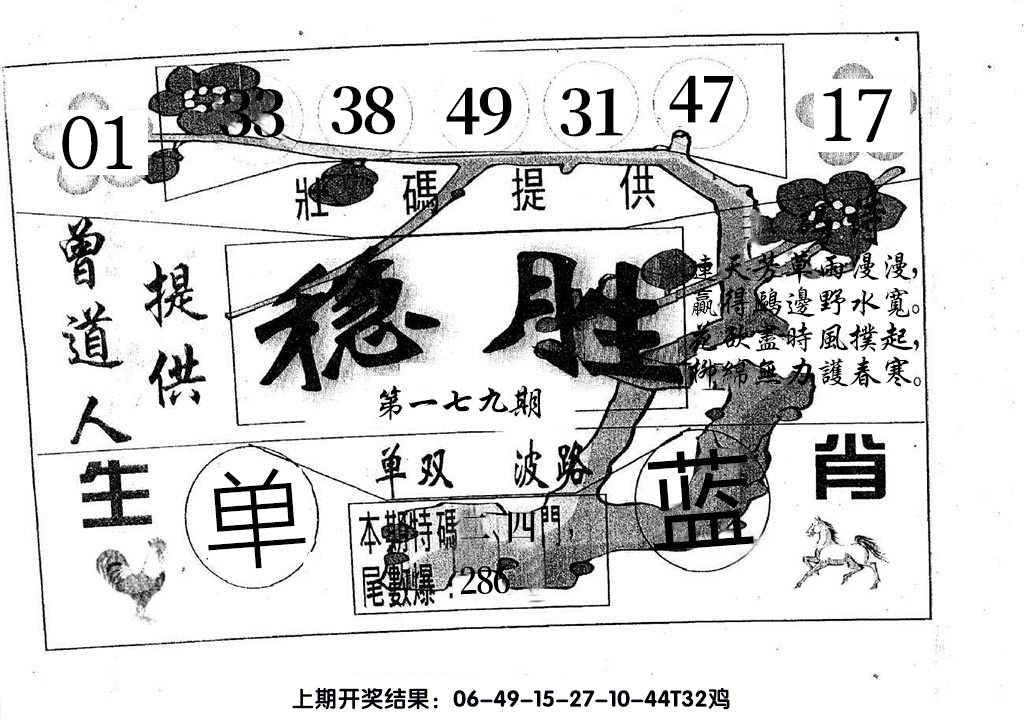 01 33 38 49 31 47 17
壯碼提供
曾道人
提供
稳胜
第一七九期
連天芳草雨漫漫，
贏得鷗邊野水寬。
花欲盡時風撲起，
柳綿無力護春寒。
单双 波路
生肖
单 蓝
本期特碼二、四門，
尾數爆：286
上期开奖结果：06-49-15-27-10-44T32鸡